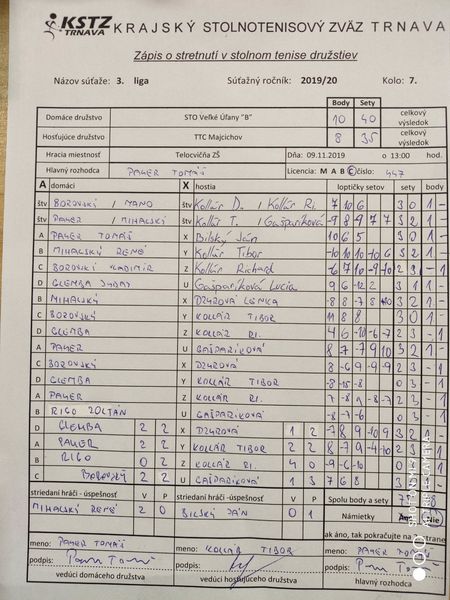 KSTZ TRNAVA KRAJSKÝ STOLNOTENISOVÝ ZVÄZ TRNAVA
Zápis o stretnutí v stolnom tenise družstiev
Názov súťaže: 3. liga Súťažný ročník: 2019/20 Kolo: 7.
Body Sety
Domáce družstvo STO Veľké Úľany "B" 10 40 celkový výsledok
Hosťujúce družstvo TTC Majcichov 8 35 celkový výsledok
Hracia miestnosť Telocvičňa ZŠ Dňa: 09.11.2019 o 13:00 hod.
Hlavný rozhodca PAYER TOMÁŠ Licencia: M A B C číslo: 447
A domáci X hostia loptičky setov sety body
štv BOROVSKÝ / MANO štv Kollár D. / Kollár Ri. 7 10 6 3 0 1 -
štv PAYER / MIHALSKÝ štv Kollár T. / Gašparíková -9 8 9 7 7 3 2 1 -
A PAYER TOMÁŠ X Bilský Ján 10 6 5 3 0 1 -
B MIHALSKÝ RENÉ Y Kollár Tibor -10 10 10 -10 6 3 2 1 -
C BOROVSKÝ VLADIMÍR Z Kollár Richard -6 7 10 -9 -10 2 3 - 1
D GLEMBA U Gašparíková Lucia 9 6 -12 2 3 1 1 -
B MIHALSKÝ X DZUROVÁ LENKA -8 8 -7 8 3 2 1 -
C BOROVSKÝ Y KOLLÁR TIBOR 11 8 8 3 0 1 -
D GLEMBA Z KOLLÁR RI. 4 6 -10 -6 -7 2 3 - 1
A PAYER U GAŠPARÍKOVÁ 8 -7 -7 9 10 3 2 1 -
C BOROVSKÝ X DZUROVÁ 8 -6 9 -9 -9 2 3 - 1
D GLEMBA Y KOLLÁR TIBOR -8 -15 -8 0 3 - 1
A PAYER Z KOLLÁR RI. 7 -8 9 -8 -7 2 3 - 1
B RIGO ZOLTÁN U GAŠPARÍKOVÁ -8 -7 -6 0 3 - 1
D GLEMBA 2 2 X DZUROVÁ 1 2 -7 8 9 -10 9 3 2 1 -
A PAYER 2 2 Y KOLLÁR TIBOR 2 2 8 -7 9 -4 10 3 2 1 -
B RIGO 0 2 Z KOLLÁR RI. 4 0 -9 -6 -10 0 3 - 1
C BOROVSKÝ 2 2 U GAŠPARÍKOVÁ 1 3 7 6 8 3
striedaní hráči - úspešnosť V P striedaní hráči - úspešnosť V P Spolu body a sety
MIHALSKÝ RENÉ 2 0 BILSKÝ JÁN 0 1 Námietky
ak áno, tak pokračujte na strane
meno: PAYER TOMÁŠ meno: KOLLÁR TIBOR meno: PAYER TOMÁŠ
podpis: podpis: podpis:
vedúci domáceho družstva vedúci hosťujúceho družstva hlavný rozhodca